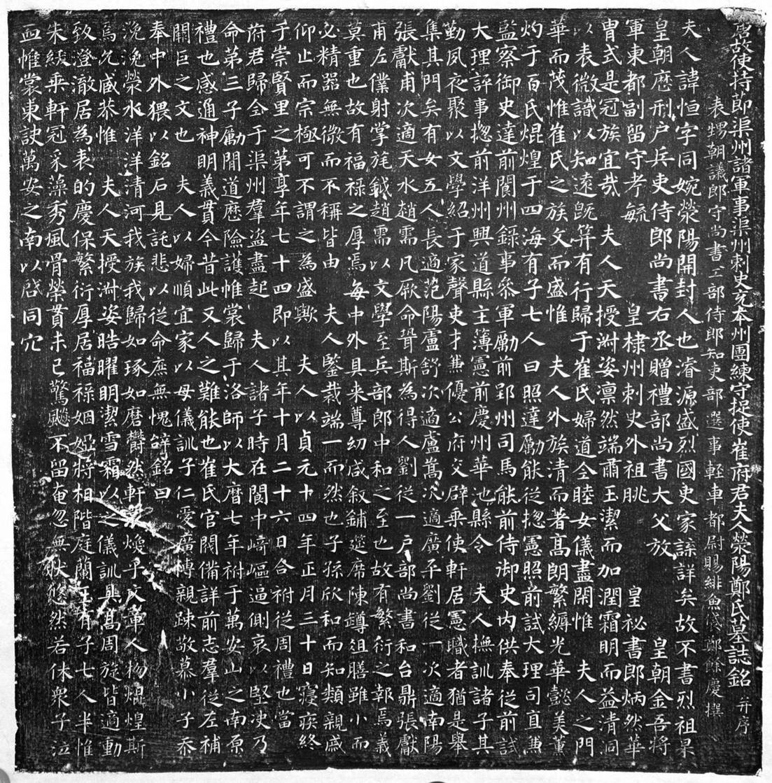 唐故使持節渠州諸軍事渠州刺史充本州團練守捉使崔府君夫人滎陽鄭氏墓誌銘并序
表甥朝議郎守尚書工部侍郎知吏部選事輕車都尉賜緋魚袋鄭餘慶撰
夫人諱恒字同婉滎陽開封人也濬源盛烈國史家諜詳矣故不書烈祖杲
皇朝歷刑戶兵吏侍郎尚書右丞贈禮部尚書大父放 皇朝金吾將
軍東都副留守考毓 皇棣州刺史外祖眺 皇秘書郎炳然華
胄式是冠族宜哉 夫人天授淑姿凜然端肅玉潔而加潤霜明而益清洞
以表微識以知遠既筭有行歸于崔氏婦道全睦女儀盡閑惟 夫人之門
華而茂惟崔氏之族文而盛惟 夫人外族清而著高朗繁縟光華懿美薰
灼于百氏焜煌于四海有子七人曰照達勵能從揔憲照前試大理司直兼
監察御史達前閬州錄事參軍勵前郢州司馬能前侍御史內供奉從前試
大理評事揔前洋州興道縣主簿憲前慶州華池縣令 夫人撫訓諸子其
勤夙夜聚以文學紹于家聲吏才兼優公府交辟乘使軒居憲職者猶是舉
集其門矣有女五人長適范陽盧舒次適盧雋次適廣平劉從一次適南陽
張獻甫次適天水趙需凡厥命胥斯為得人劉從一戶部尚書和台鼎張獻
甫左僕射掌旄鉞趙需以文學至兵部郎中和之至也故有繁衍之郭焉義
莫重也故有福祿之厚焉每中外具來尊幼咸敘鋪筵席陳罇俎膳雖小而
必精器無微而不稱皆由 夫人鑒裁端一而然也子孫欣和而知類親戚
仰止而宗極可不謂之為盛歟 夫人以貞元十四年正月三十日寢疾終
于崇賢里之第享年七十四即以其年十月二十六日合祔從周禮也當
府君歸全于渠州羣盜盡起 夫人諸子時在閬中崎嶇逼側哀以堅決乃
命第三子勵閒道歷險護惟裳歸于洛師以大曆七年祔于萬安山之南原
禮也感通神明義貫今昔此又人之難能也崔氏官閥備詳前志羣從左補
闕巨之文也 夫人以婦順宜家以母儀訓子仁愛廣博親疎敬慕小子忝
奉中外猥以銘石見託悲以從命庶無愧辭銘曰
浼浼滎水洋洋清河我族我歸如琢如磨欝然軒冕煥乎人軍人物熠煌斯
焉允咸恭惟 夫人天授淑姿皓曜明潔雪霜以之儀訓典曷周旋皆適動
致澄澈居為表的慶保繁衍厚居福祿姻婭將相階庭蘭玉有子七人半惟
朱紱乘軒冠豸藻秀風骨榮貫未已驚飈不留奄忽無狀悠然若休眾子泣
血惟裳東訣萬安之南以啓同穴